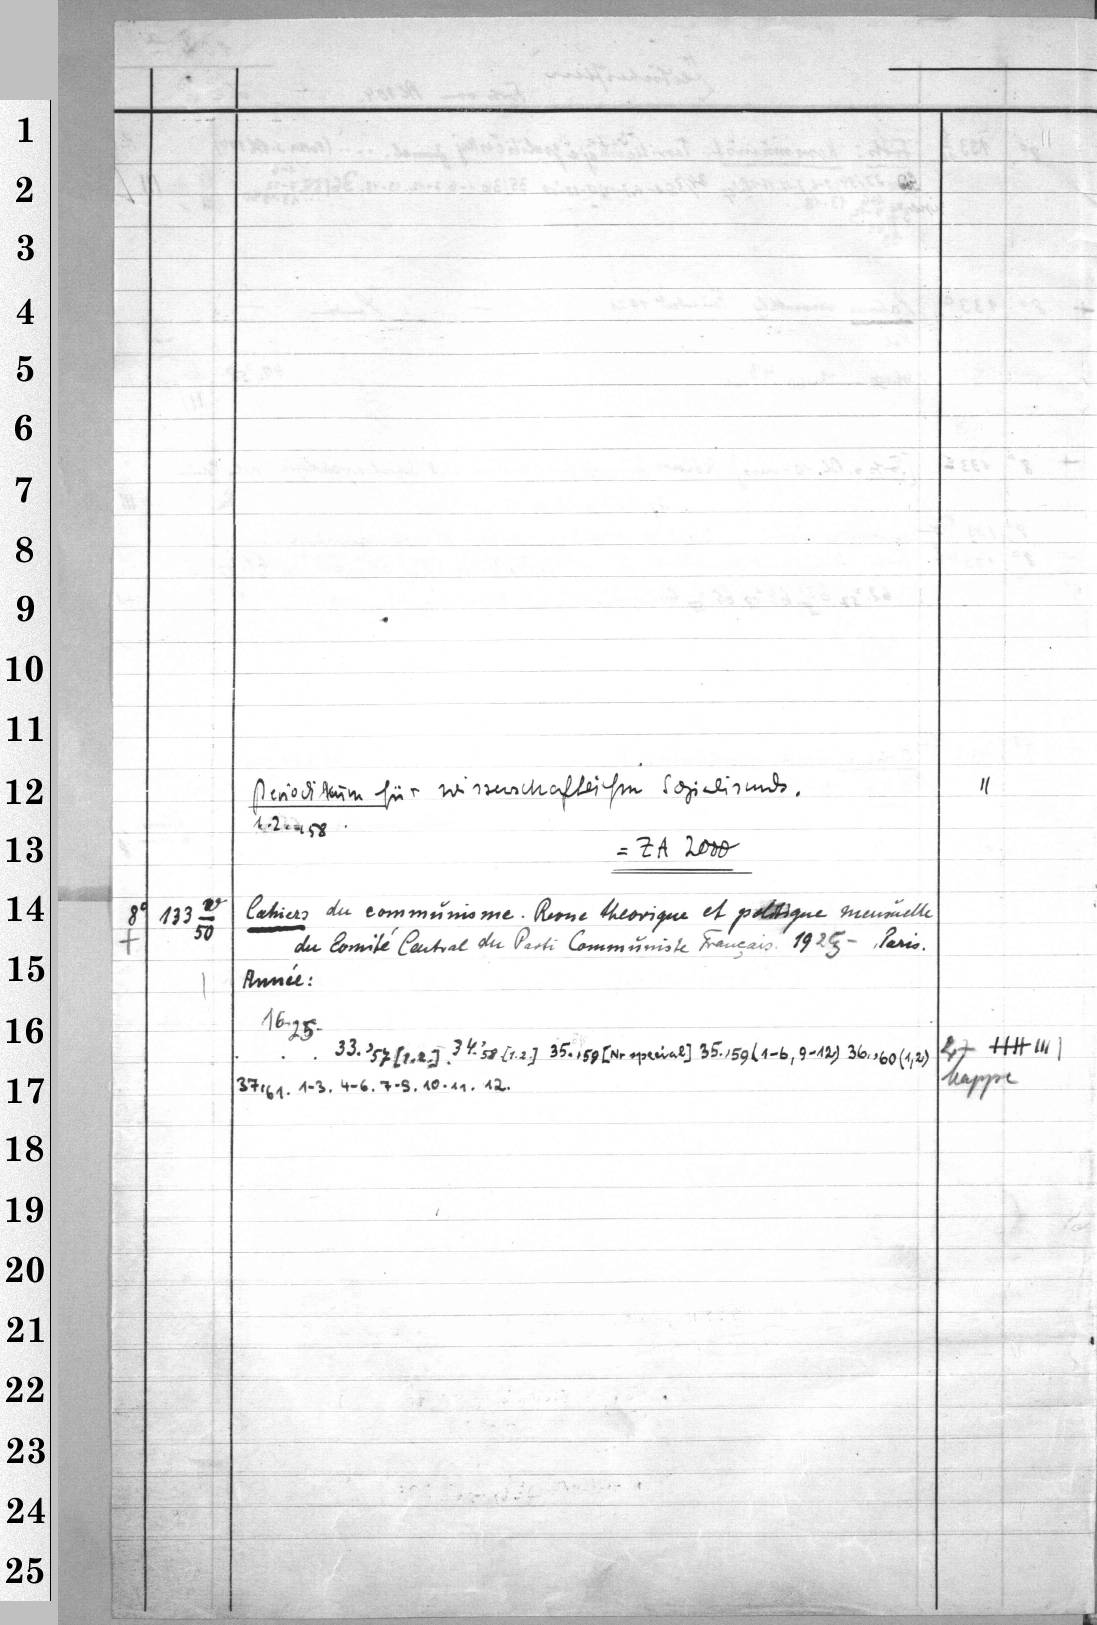 1
2
3
4
5
6
7
8
9
10
11
12
13
14
15
16
17
18
19
20
21
22
23
24
25
Periodikum für wissenschaftlichen Sozialismus. "
1.2. 58.
= ZA 2000
8° 133 w/50 Cahiers du communisme. Revue théorique et politique mensuelle
+ du Comité Central du Parti Communiste Français. 1925- Paris.
Année:
16-25-
33.'57 [1.2.] 34.'58 [1.2.] 35.'59 [Nr spécial] 35.'59 (1-6, 9-12) 36.'60 (1,2)
37.'61. 1-3. 4-6. 7-9. 10-11. 12.
Mappe